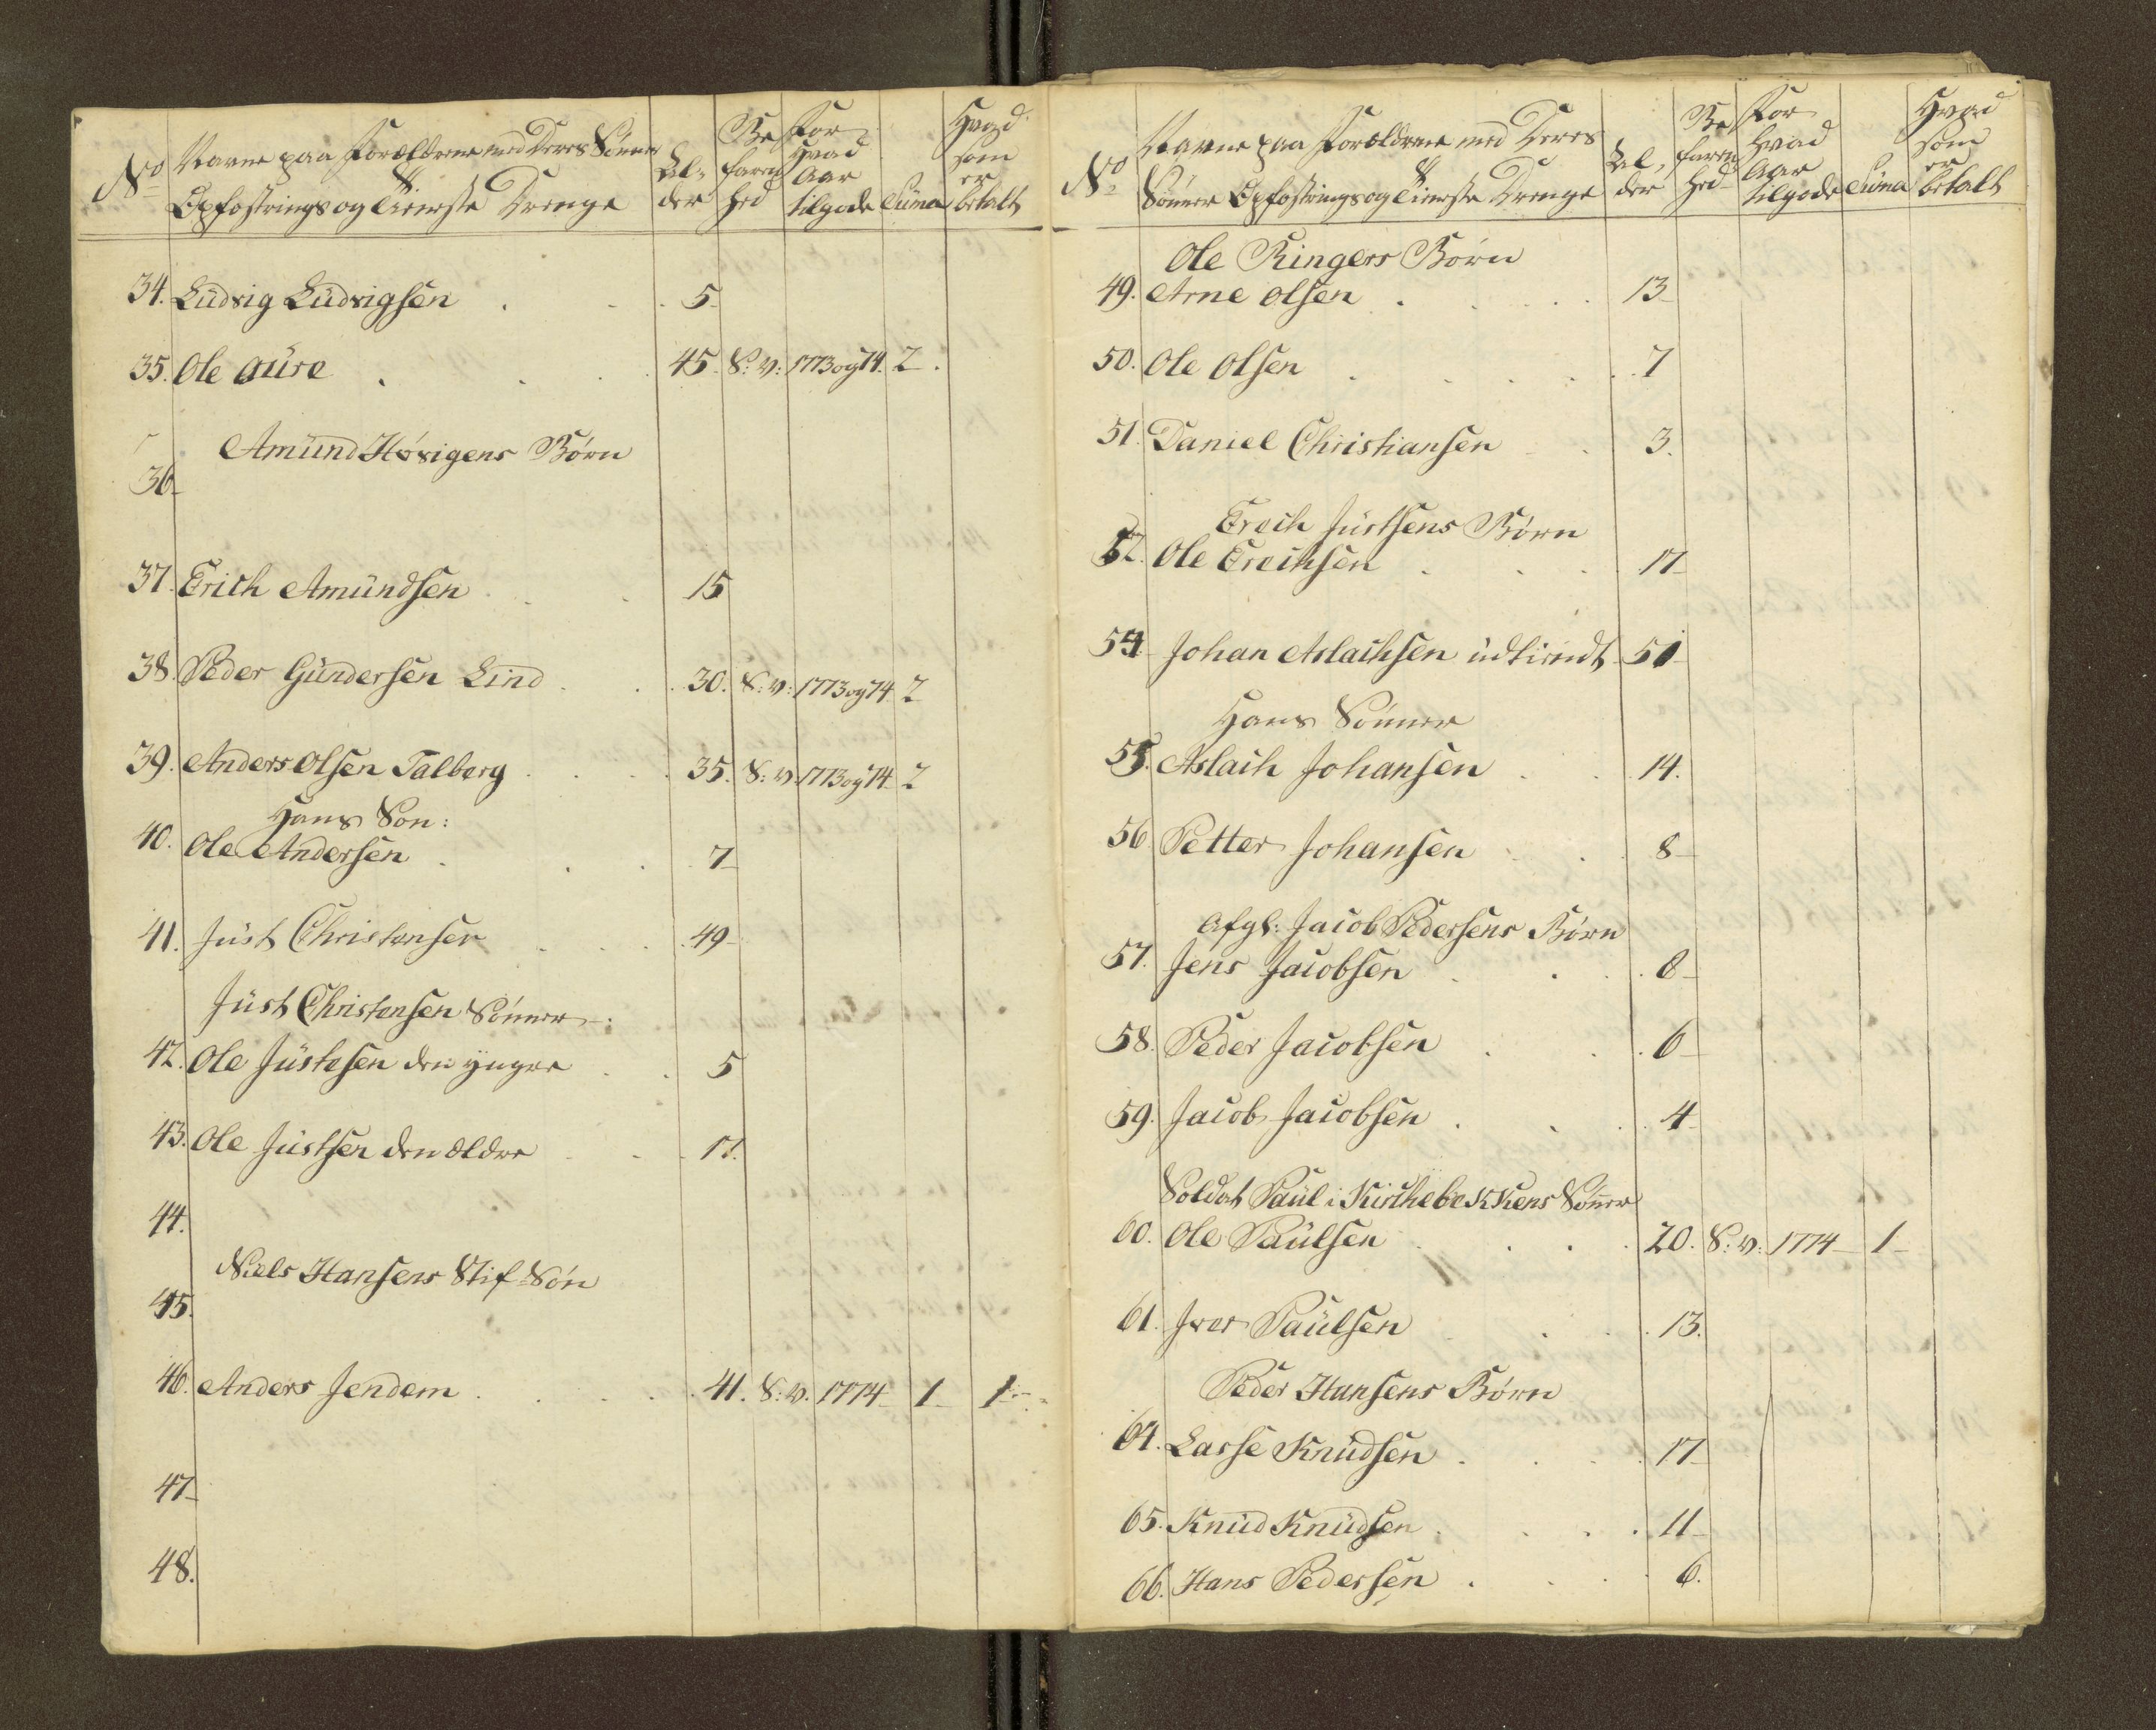 No
Navne paa Forældrene med Deres Sønner
Opfostrings og Tieneste Drenge
Al-
der
Be
faren
hed
For
Hvad
Aar
tilgode
Suma
Hvad
som
er
betalt
34. Ludvig Ludvigsen 5
35. Ole Aure 45. S: v: 1773 og 74. 2.
Amund Hørigens Børn
36
37. Erich Amundsen 15
38. Peder Gundersen Lind 30. S: v: 1773 og 74 2
39. Anders Olsen Talberg 35. S: v. 1773 og 74 2
Hans Son:
40. Ole Andersen 7
41. Just Christensen 49
Just Christensen Sønner
42. Ole Justesen den yngre 5
43. Ole Justsen den ældre 17.
44.
Niels Hansens Stif-Søn
45.
46. Anders Jendem 41. S: v. 1774 1 1
47
48.
No
Navne paa Forældrene med Deres
Sønner Opfostrings og Tieneste Drenge
Al-
der
Be
faren
hed
For
Hvad
Aar
tilgode
Suma
Hvad
som
er
betalt
Ole Ringers Børn
49. Arne Olsen 13
50. Ole Olsen 7
51. Daniel Christiansen 3.
Erich Justsens Børn
52. Ole Erichsen 17
54 Johan Aslachsen udtient 51
Hans Sønner
55. Aslach Johansen 14.
56 Petter Johansen 8
Afgl: Jacob Pedersens Børn
57. Jens Jacobsen 8
58. Peder Jacobsen 6
59. Jacob Jacobsen 4
Soldat Paul i Kirchebekkens Sønner
60. Ole Paulsen 20. S: v: 1774 1
61. Iver Paulsen 13.
Peder Hansens Børn
64. Lasse Knudsen 17
65. Knud Knudsen 11
66. Hans Pedersen 6.